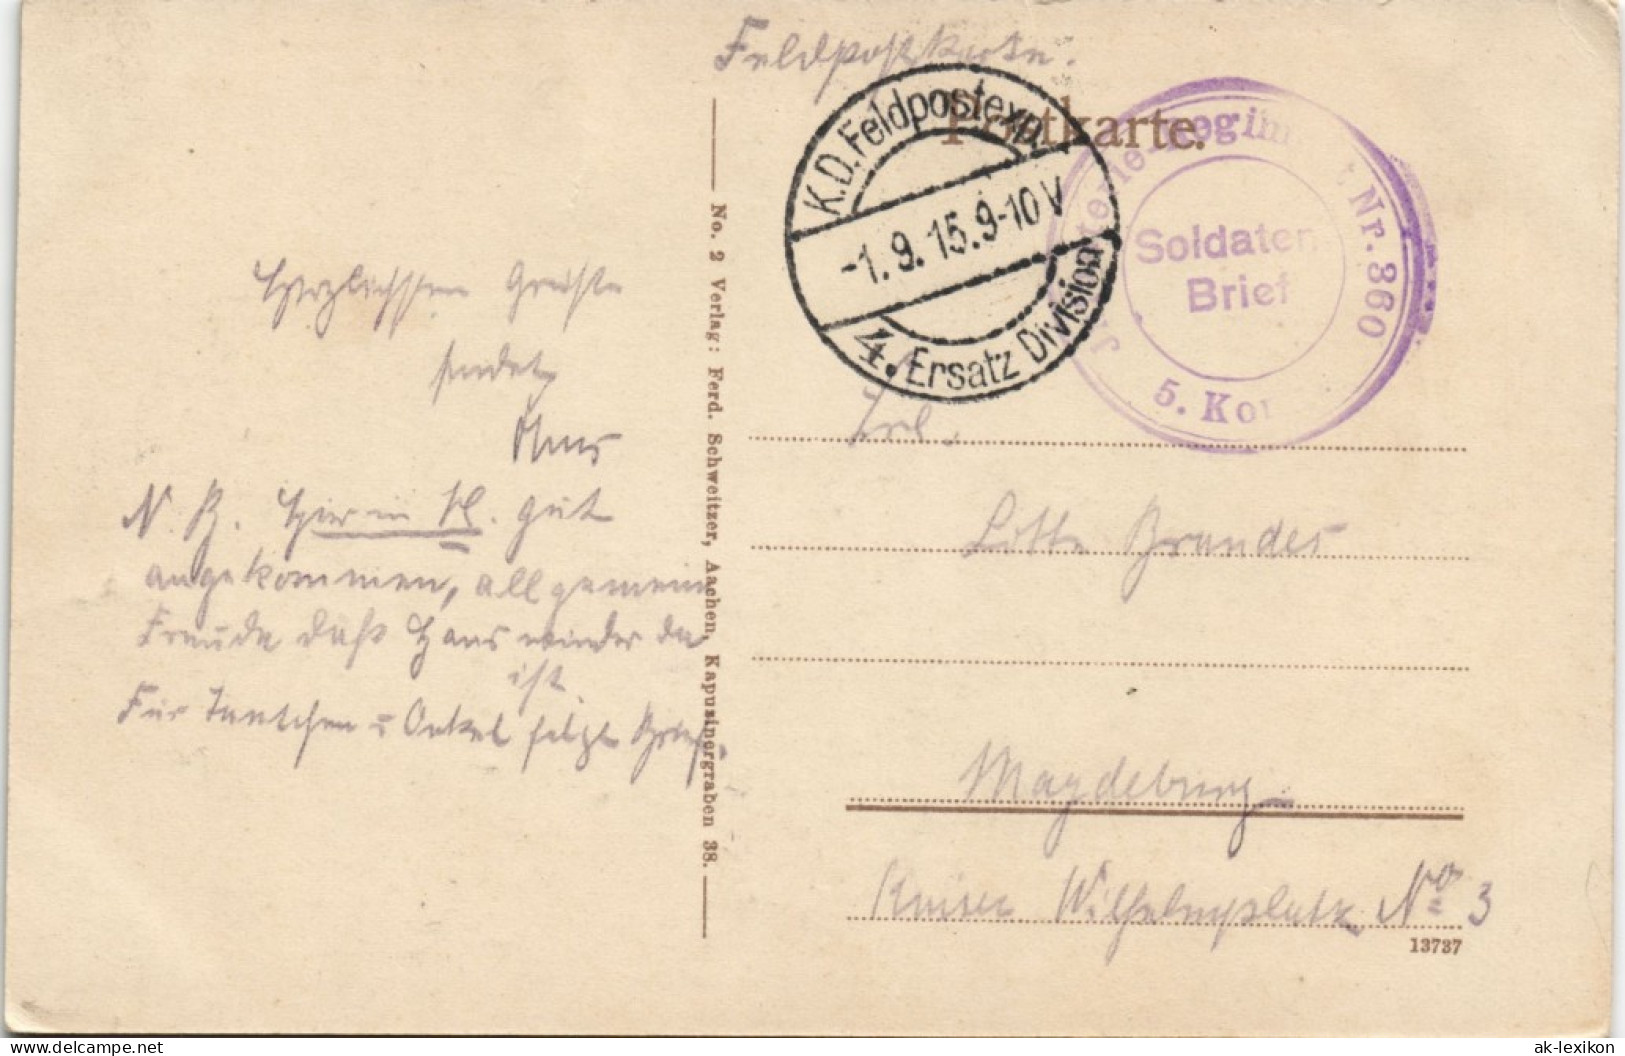 Feldpostkarte.
Postkarte.
K.D. Feldpostexp.
-1.9.15.9-10V
4. Ersatz Division
Regim Nr. 360
Soldaten
Brief
5. Kom
Herzlichsten Grüße
sendet
Hans
N. B. Hier in M. gut
angekommen, allgemeine
Freude daß Hans wieder da
ist.
Für Tantchen u Onkel folgt Brief.
No. 2 Verlag: Ferd. Schweitzer, Aachen, Kapuzinergraben 38.
Frl.
Lotte Brandes
Magdeburg
Kaiser Wilhelmplatz No 3
13737
delcampe.net
ak-lexikon